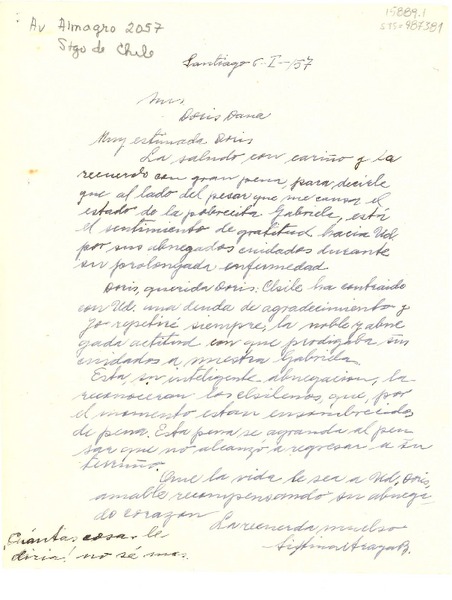 Av Almagro 2057
Stgo de Chile
15889.1
Santiago 6-I-57
Doris Dana
Muy estimada Doris
La saludo con cariño y la
recuerdo con gran pena, para decirle
que al lado del pesar que me causa el
estado de la pobrecita Gabriela, está
el sentimiento de gratitud hacia Ud.
por sus abnegados cuidados durante
su prolongada enfermedad
Doris, querida Doris: Chile ha contraido
con Ud. una deuda de agradecimiento y
yo repetiré siempre, la noble y abne
gada actitud con que prodigaba sus
cuidados a nuestra Gabriela.
Esta su inteligente abnegacion, la
reconocerán los chilenos, que, por
el momento estan ensombrecidos
de pena. Esta pena se agranda al pen
sar que no alcanzó a regresar a su
terruño.
Que la vida le sea a Ud, Doris,
amable recompensando su abnega
do corazon
La recuerda mucho
¡Cuántas cosas le
diria! no sé mas.